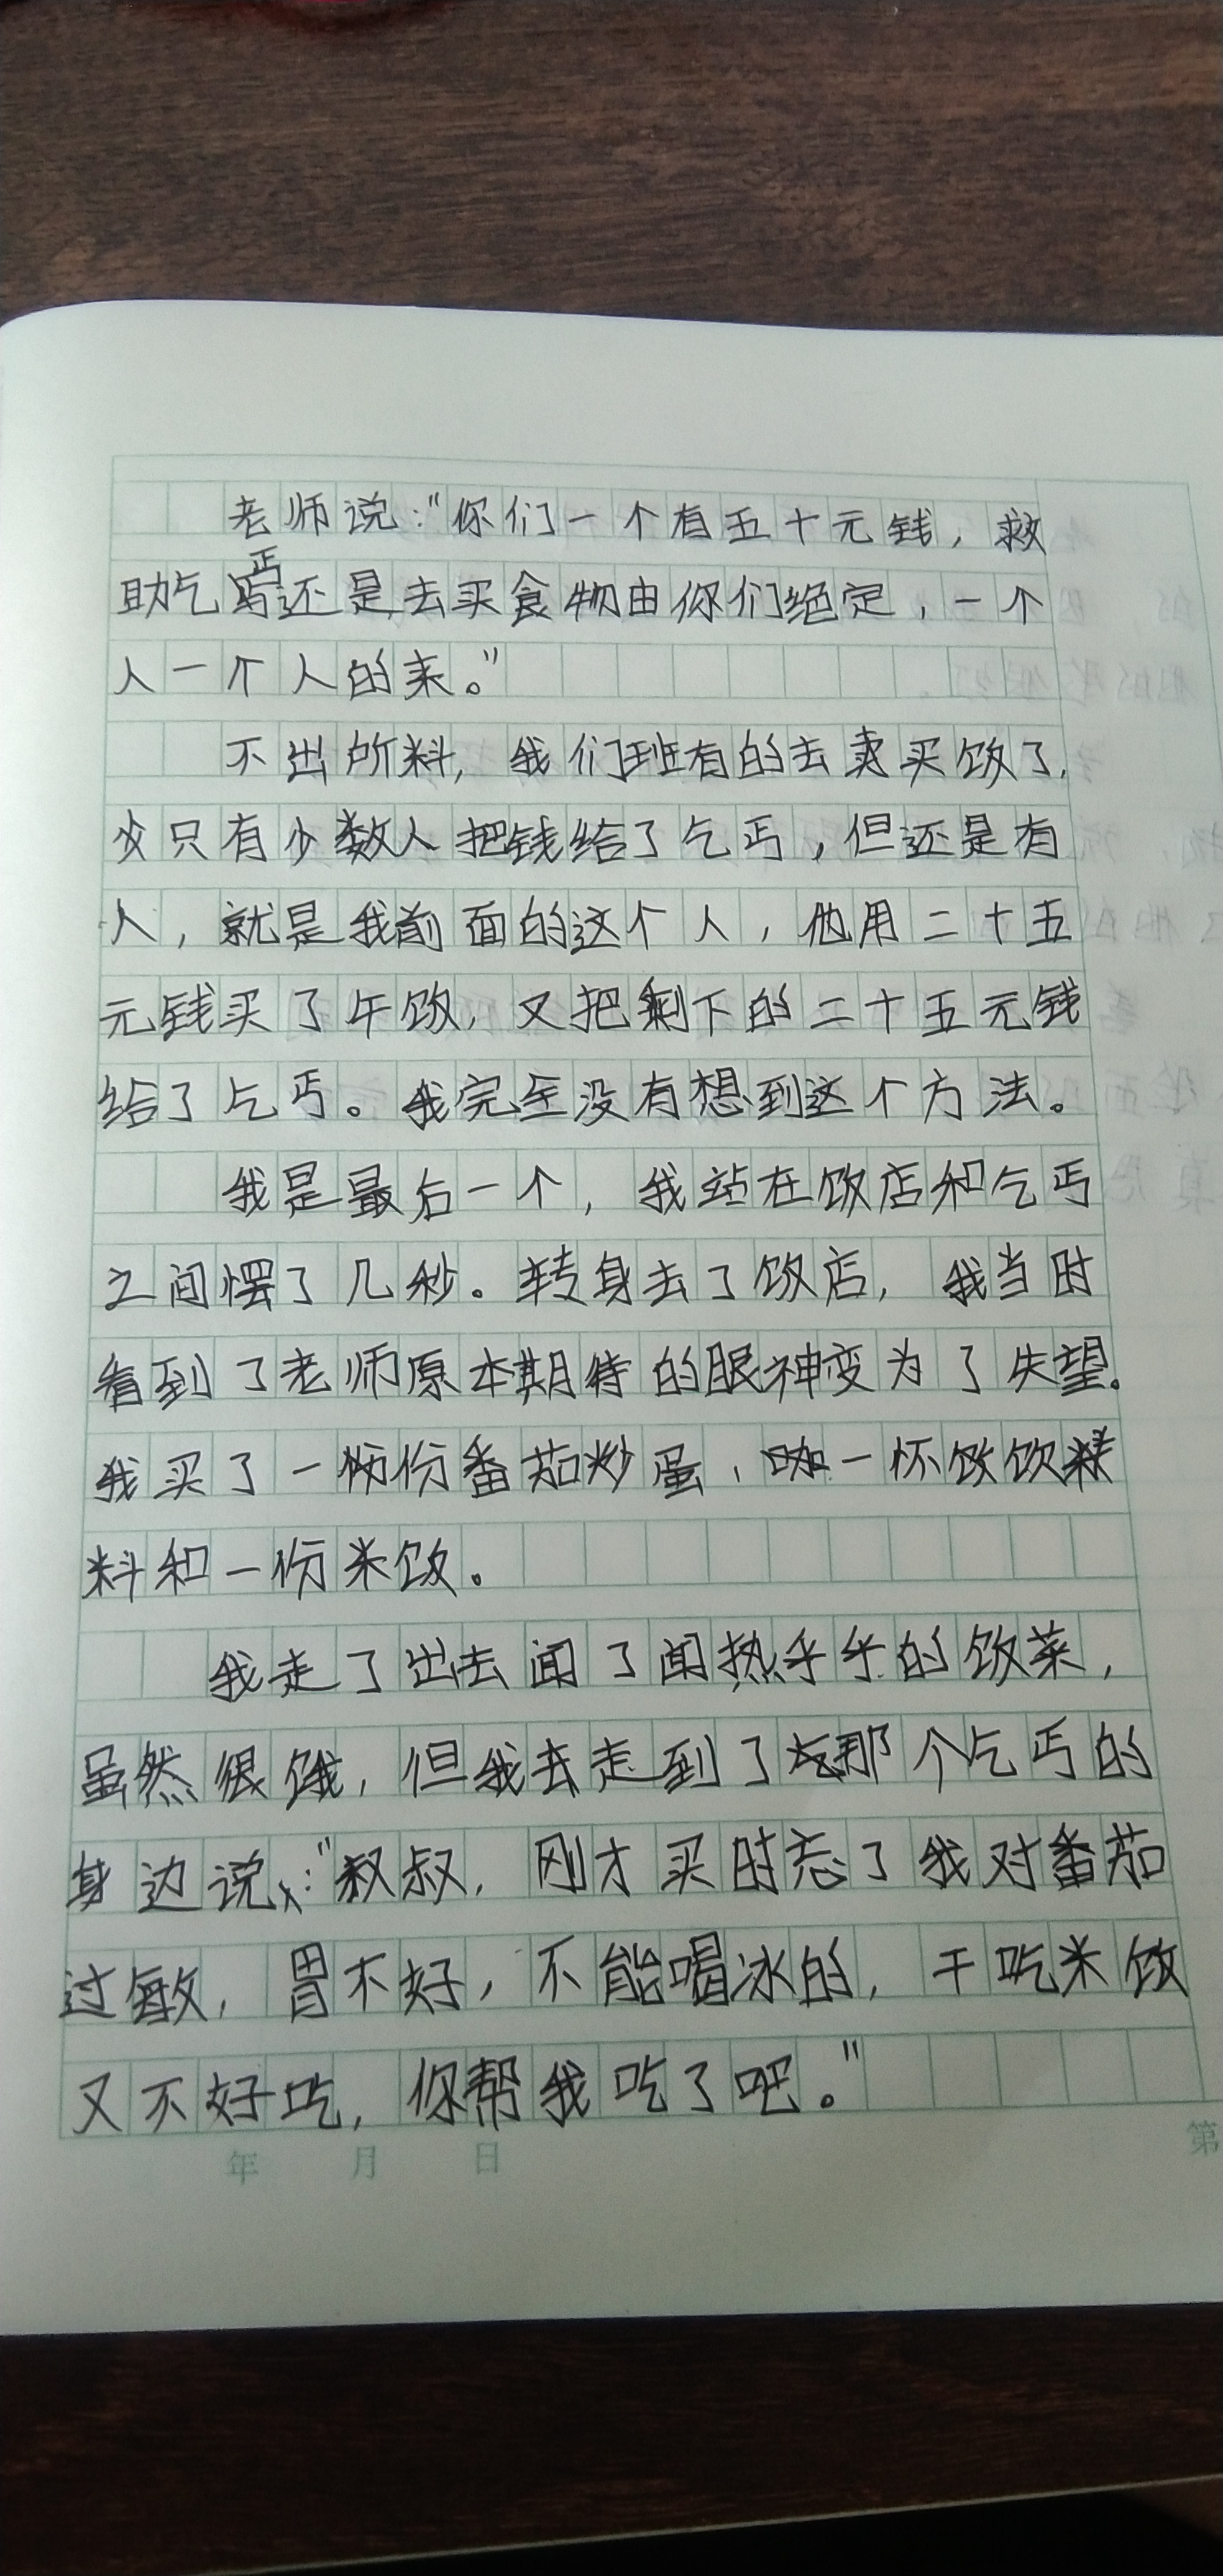 老师说:"你们一个有五十元钱，救
助乞丐还是去买食物由你们绝定，一个
人一个人的来。"
不出所料，我们班有的去买饭了，
只有少数人把钱给了乞丐，但还是有
人，就是我前面的这个人，他用二十五
元钱买了午饭，又把剩下的二十五元钱
给了乞丐。我完全没有想到这个方法。
我是最后一个，我站在饭店和乞丐
之间愣了几秒。转身去了饭店，我当时
看到了老师原本期待的眼神变为了失望。
我买了一份番茄炒蛋，一杯饮
料和一份米饭。
我走了出去闻了闻热乎乎的饭菜，
虽然很饿，但我走到了那个乞丐的
身边说:"叔叔，刚才买时忘了我对番茄
过敏，胃不好，不能喝冰的，干吃米饭
又不好吃，你帮我吃了吧。"
年 月 日
第